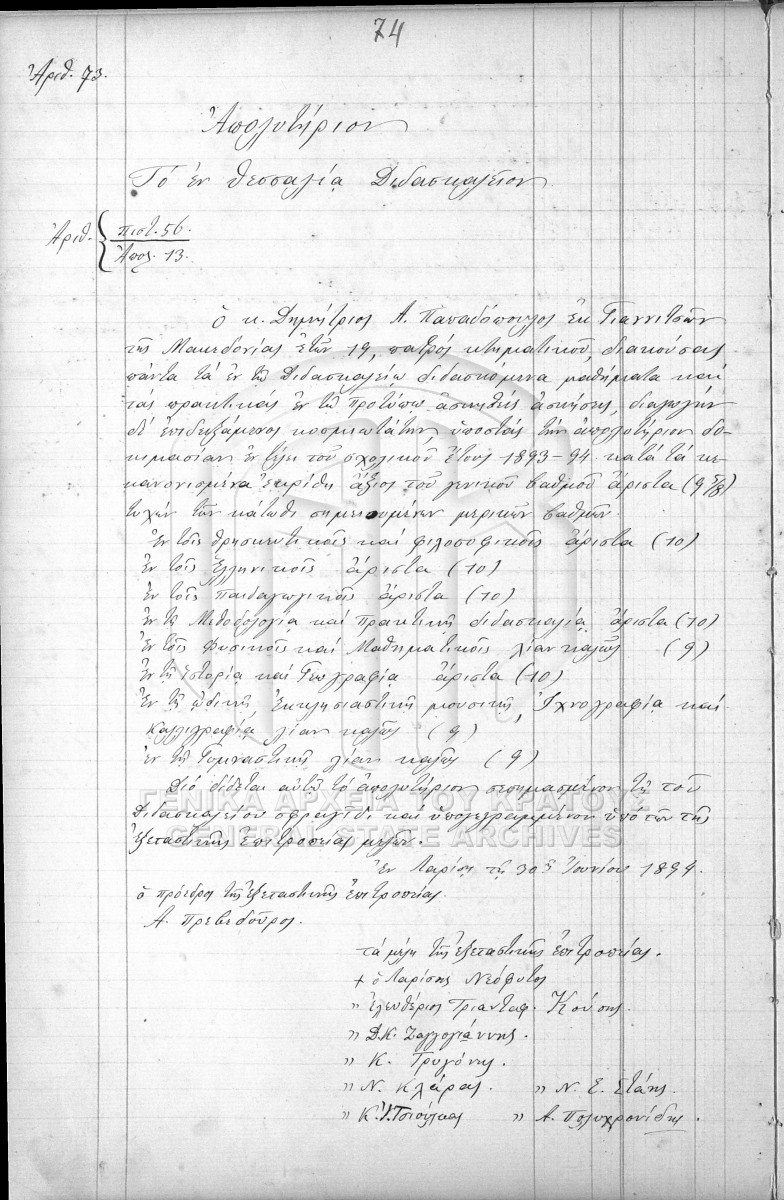 74
Ἀριθ. 73.
Ἀπολυτήριον
Τό ἐν Θεσσαλίᾳ Διδασκαλεῖον
Ἀριθ. { πιστ. 56.
Ἀπολ. 13.
ὁ κ. Δημήτριος Α. Παπαδόπουλος ἐκ Γιαννιτσῶν
τῆς Μακεδονίας ἐτῶν 19, πατρός κτηματικοῦ, διακούσας
πάντα τά ἐν τῷ Διδασκαλείῳ διδασκόμενα μαθήματα καί
τάς πρακτικάς ἐν τῷ Προτύπῳ ἀσκηθείς ἀσκήσεις, διαγωγήν
δέ ἐπιδειξάμενος κοσμιωτάτην, ὑποστάς τήν ἀπολυτήριον δο-
κιμασίαν ἐν τέλει τοῦ σχολικοῦ ἔτους 1893-94 κατά τά κε-
κανονισμένα ἐκρίθη ἄξιος τοῦ γενικοῦ βαθμοῦ ἄριστα (9 5/8)
τυχών τῶν κάτωθι σημειουμένων μερικῶν βαθμῶν.
Ἐν τοῖς θρησκευτικοῖς καί φιλοσοφικοῖς ἄριστα (10)
Ἐν τοῖς Ἑλληνικοῖς ἄριστα (10)
Ἐν τοῖς Παιδαγωγικοῖς ἄριστα (10)
Ἐν τῇ Μεθοδολογίᾳ καί Πρακτικῇ διδασκαλίᾳ ἄριστα (10)
Ἐν τοῖς Φυσικοῖς καί Μαθηματικοῖς λίαν καλῶς (9)
Ἐν τῇ Ἱστορίᾳ καί Γεωγραφίᾳ ἄριστα (10)
Ἐν τῇ ᾠδικῇ, Ἐκκλησιαστικῇ μουσικῇ, Ἰχνογραφίᾳ καί
Καλλιγραφίᾳ λίαν καλῶς (9)
Ἐν τῇ Γυμναστικῇ λίαν καλῶς (9)
Διό δίδεται αὐτῷ τό ἀπολυτήριον σεσημασμένον τῇ τοῦ
ΓΕΝΙΚΑ ΑΡΧΕΙΑ ΤΟΥ ΚΡΑΤΟΥΣ
Διδασκαλείου σφραγῖδι καί ὑπογεγραμμένον ὑπό τῶν τῆς
GENERAL STATE ARCHIVES
ἐξεταστικῆς ἐπιτροπείας μελῶν.
Ἐν Λαρίσῃ τῇ 30ῃ Ἰουνίου 1894.
ὁ πρόεδρος τῆς ἐξεταστικῆς ἐπιτροπείας
Α. Πρεβεδοῦρος.
τά μέλη τῆς ἐξεταστικῆς ἐπιτροπείας.
+ ὁ Λαρίσης Νεόφυτος
" Ἐλευθέριος Τριανταφ. Κούσης.
" Δ.Κ. Ζαγγογιάννης.
" Κ. Τρυγόνης.
" Ν. Κλάρας. " Ν. Ε. Στάης.
" Κ. Ι. Τσιούλκας " Α. Πολυχρονίδης.